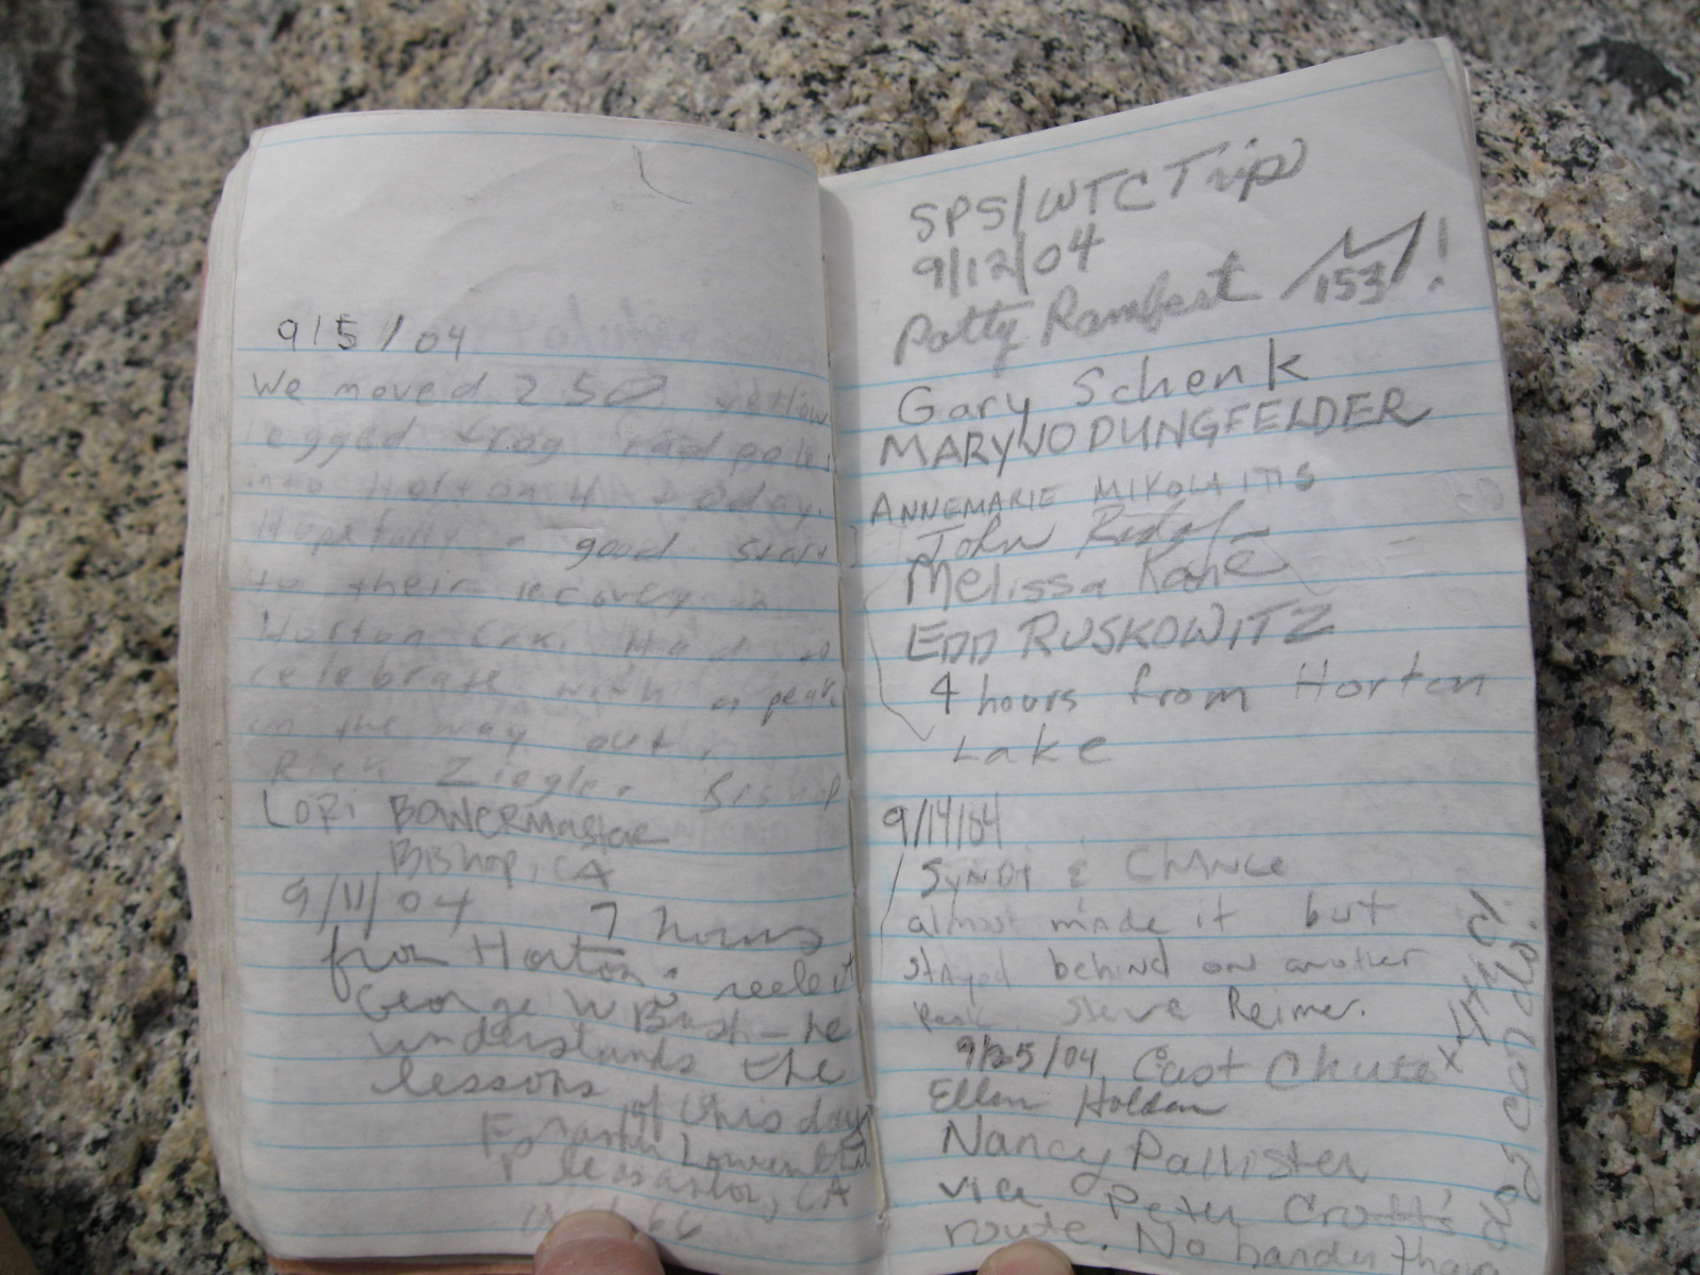 9/5/04
We moved 250 yellow
legged frog tadpoles
into Horton 4 today.
Hopefully a good start
to their recovery in
Horton Crk. Had to
celebrate with a peak
on the way out.
Rick Ziegler Bishop
LORI BOWERMASTER
BISHOP, CA
9/11/04 7 hours
from Horton: reelect
George W Bush - he
understands the
lessons
of this day
Pleasanton, CA
SPS/WTC Trip
9/12/04
Patty Rambert 153!
Gary Schenk
MARY JO DUNGFELDER
ANNEMARIE MIKOLAITIS
John
Melissa Kane
EDD RUSKOWITZ
4 hours from Horton
Lake
9/14/04
SYNDI & CHANCE
almost made it but
stayed behind on another
peak. Steve Reimer.
9/25/04 East Chute
Ellen Holden
Nancy Pallister
via Peter Croft's
route. No harder than
dogs can do!